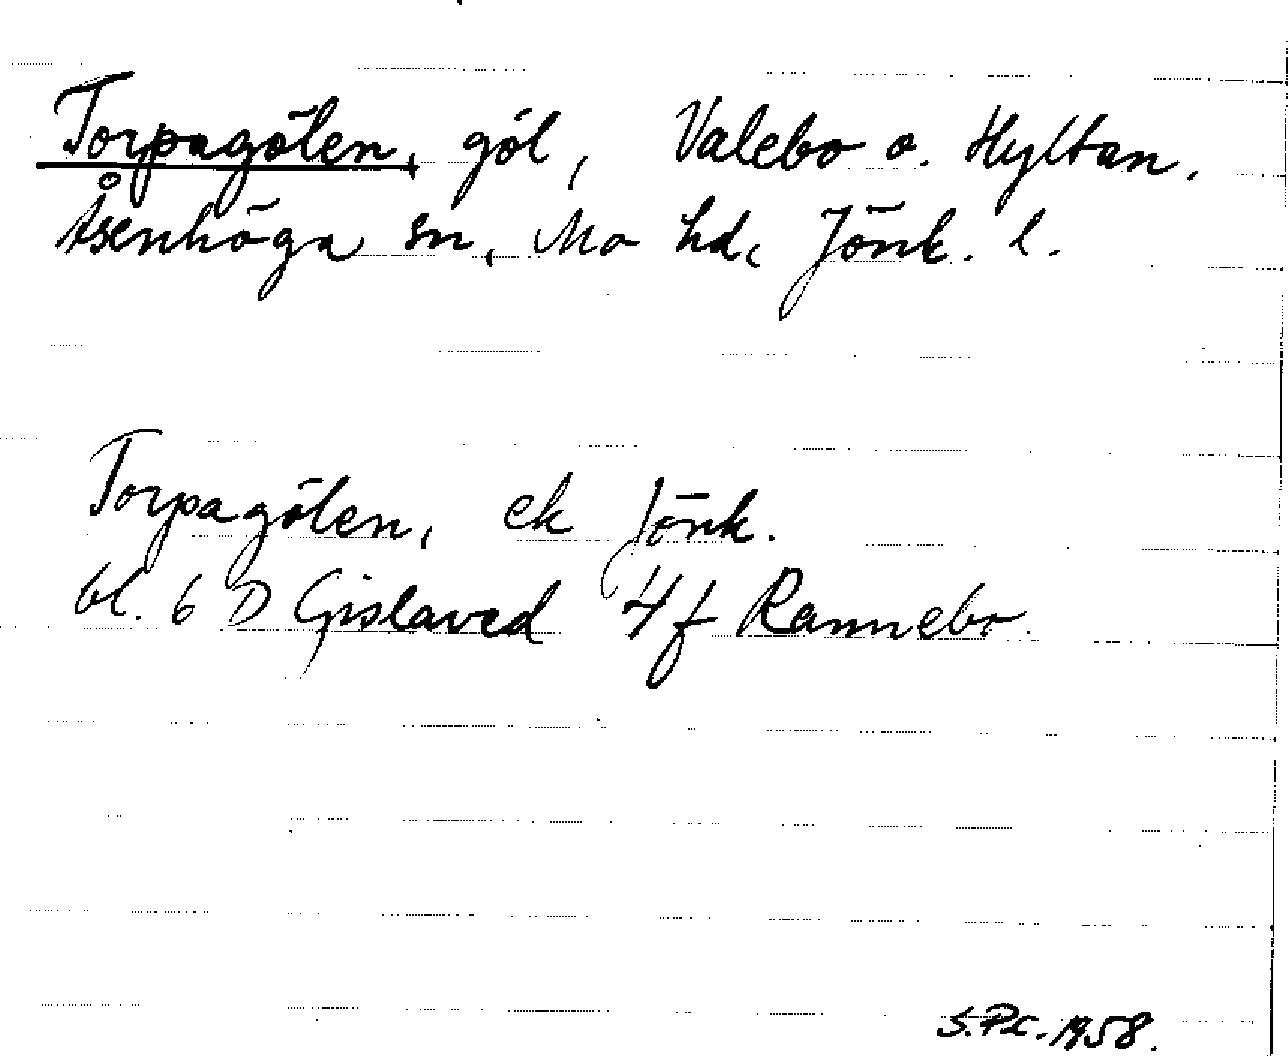 Torpagölen, göl, Valebo o. Hyltan,
Åsenhöga sn, Mo hd, Jönk. l.
Torpagölen, ek Jönk.
bl. 6 D Gislaved 4f Rannebo.
S.Pc. 1958.